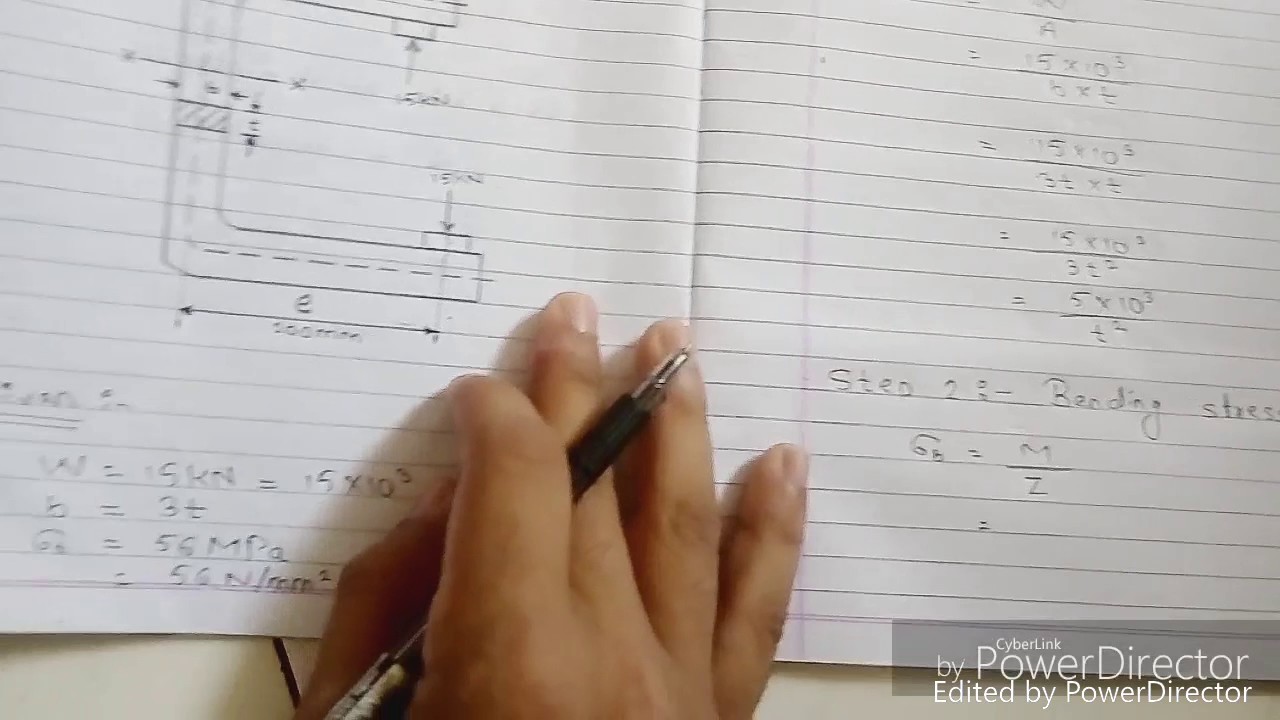 x x
b
t
15kN
15kN
e
200mm
W = 15kN = 15×10³
b = 3t
σb = 56 MPa
= 56 N/mm²
A
= 15×10³
b×t
= 15×10³
3t×t
= 15×10³
3t²
= 5×10³
t²
Step 2:- Bending stress
σb = M
Z
=
CyberLink
by PowerDirector
Edited by PowerDirector